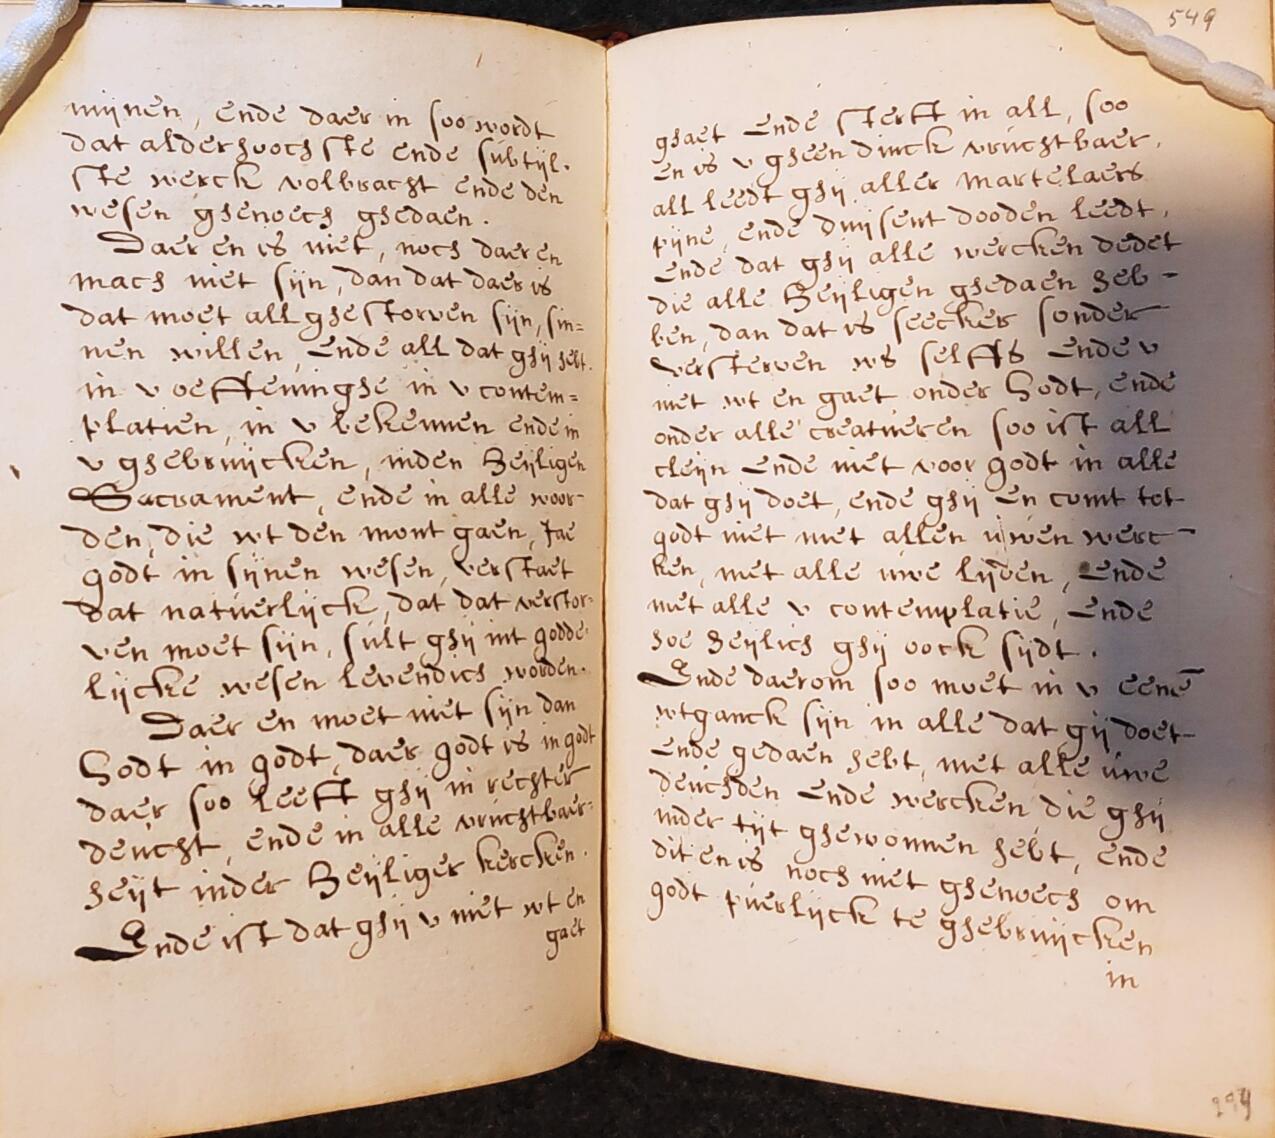 mijnen, ende daer in soo wordt
dat alderhoochste ende subtijl-
ste werck volbracht ende den
wesen ghenoech ghedaen.
Daer en is niet, noch daer en
mach niet sijn, dan dat daer is
dat moet all ghestorven sijn, sin=
nen willen, ende all dat ghij hebt.
in v oeffeninghe in v contem=
platien, in v bekennen ende in
v ghebruijcken, inden Heijligen
Sacrament, ende in alle woor-
den, die wt den mont gaen, Jae
godt in sijnen wesen, verstaet
dat natuerlijck, dat dat verstor-
ven moet sijn, sult ghij int godde-
lijcke wesen levendich worden.
Daer en moet niet sijn dan
Godt in godt, daer godt is in godt
daer soo leeft ghij in rechter
deucht, ende in alle vruchtbaer-
heijt inder Heijliger kercken.
Ende ist dat ghij v niet wt en
gaet
549
ghaet Ende sterft in all, soo
en is v gheen dinck vruchtbaer,
all leedt ghij aller martelaers
pijne, ende duijsent dooden leedt,
Ende dat ghij alle wercken dedet
die alle Heijligen ghedaen heb-
ben, dan dat is seecker sonder
versterven ws selffs Ende v
niet wt en gaet onder Godt, ende
onder alle creatueren soo ist all
cleijn Ende niet voor godt in alle
dat ghij doet, ende ghij en comt tot
godt niet met allen uwen werc-
ken, met alle uwe lijden, Ende
met alle v contemplatie, Ende
hoe heijlich ghij oock sijdt.
Ende daerom soo moet in v eenē
wtganck sijn in alle dat gij doet
Ende gedaen hebt, met alle uwe
deuchden Ende wercken die ghij
inder tijt ghewonnen hebt, ende
dit en is noch niet ghenoech om
godt puerlijck te ghebruijcken
in